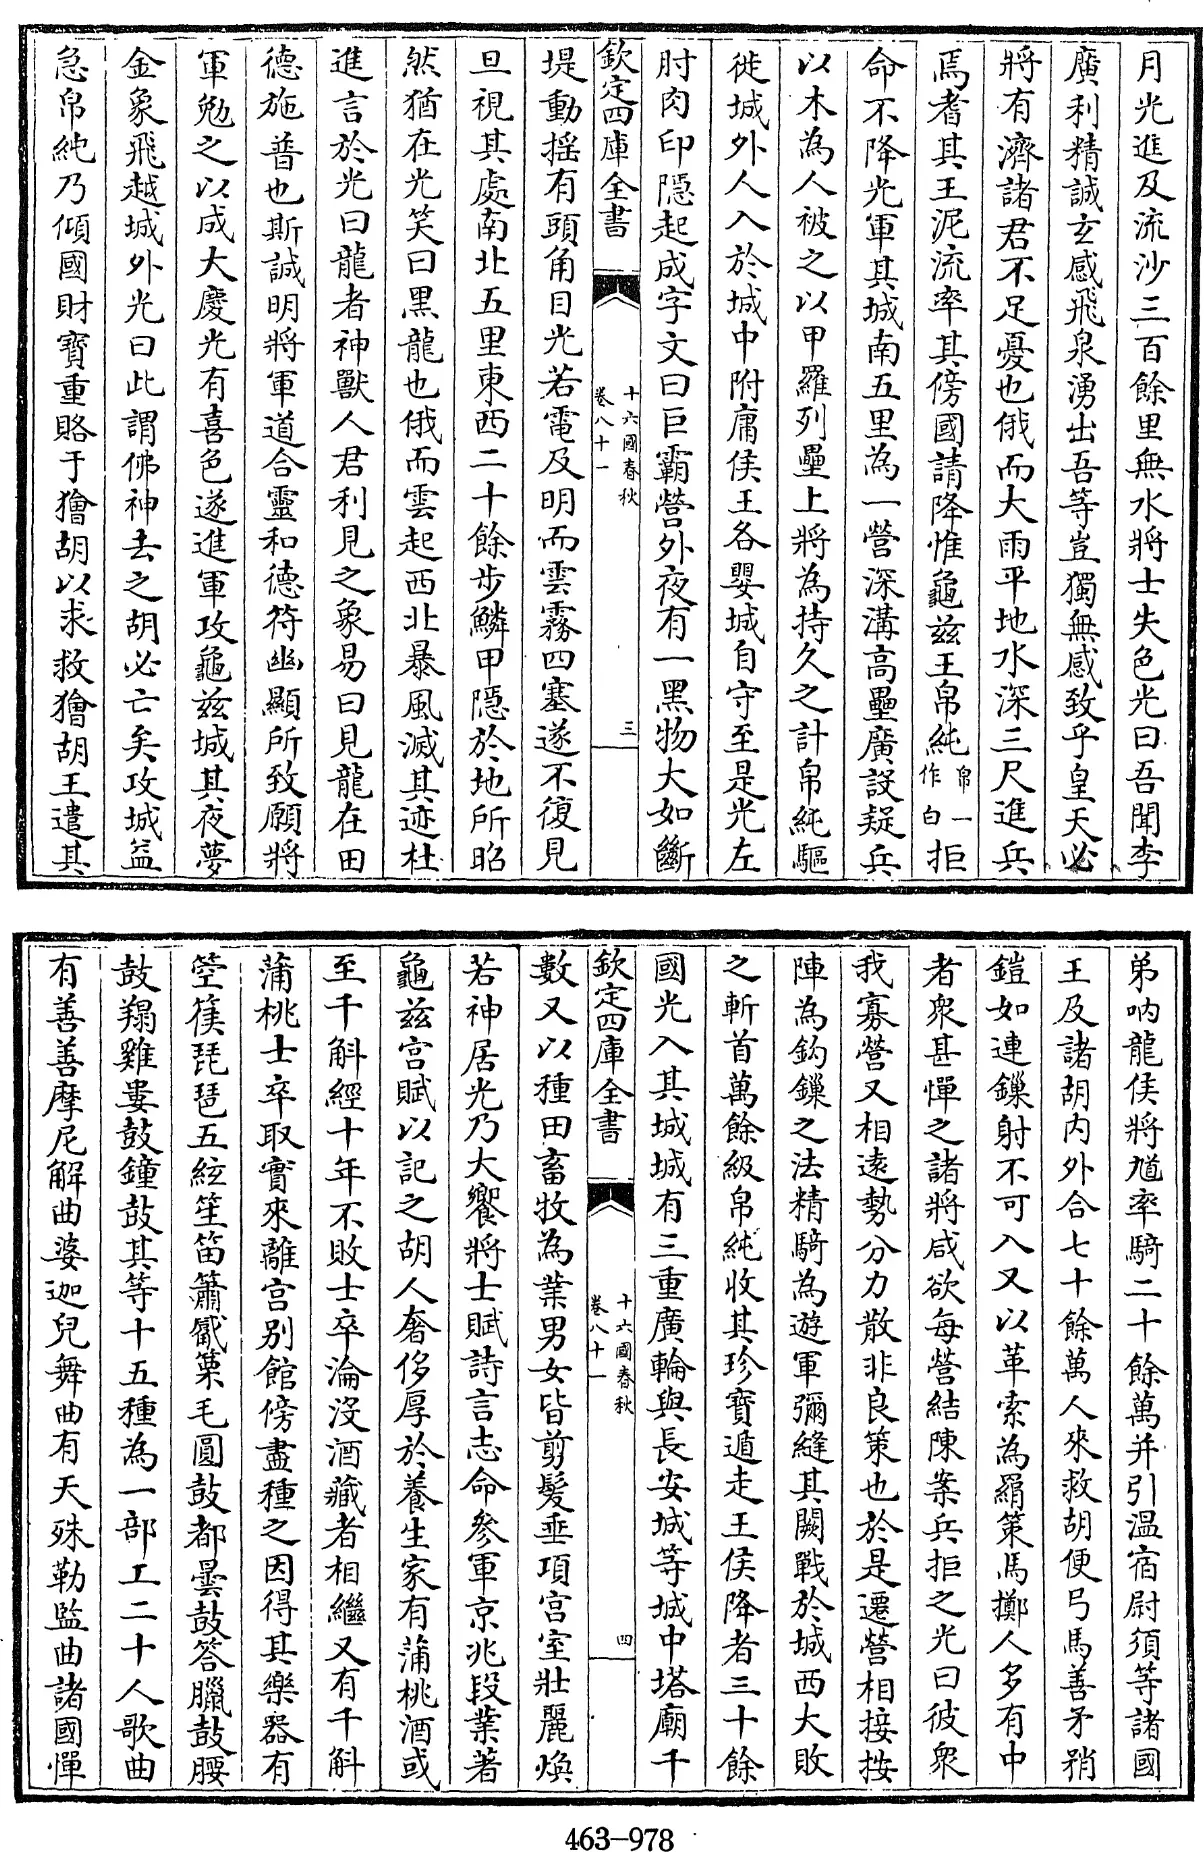 月光進及流沙三百餘里無水將士失色光曰吾聞李
廣利精誠玄感飛泉湧出吾等豈獨無感致乎皇天必
將有濟諸君不足憂也俄而大雨平地水深三尺進兵
焉耆其王泥流率其傍國請降惟龜茲王帛純帛一作白拒
命不降光軍其城南五里為一營深溝高壘廣設疑兵
以木為人被之以甲羅列壘上將為持久之計帛純驅
徙城外人入於城中附庸侯王各嬰城自守至是光左
肘肉印隱起成字文曰巨霸營外夜有一黑物大如斷
欽定四庫全書
十六國春秋
卷八十一
三
堤動揺有頭角目光若電及明而雲霧四塞遂不復見
旦視其處南北五里東西二十餘步鱗甲隱於地所昭
然猶在光笑曰黑龍也俄而雲起西北暴風滅其迹杜
進言於光曰龍者神獸人君利見之象易曰見龍在田
德施普也斯誠明將軍道合靈和德符幽顯所致願將
軍勉之以成大慶光有喜色遂進軍攻龜茲城其夜夢
金象飛越城外光曰此謂佛神去之胡必亡矣攻城益
急帛純乃傾國財寳重賂于獪胡以求救獪胡王遣其
弟吶龍侯將馗率騎二十餘萬并引温宿尉須等諸國
王及諸胡内外合七十餘萬人來救胡便弓馬善矛矟
鎧如連鏁射不可入又以革索為羂策馬擲人多有中
者衆甚憚之諸將咸欲每營結陳案兵拒之光曰彼衆
我寡營又相遠勢分力散非良策也於是遷營相接按
陣為鈎鏁之法精騎為遊軍彌縫其闕戰於城西大敗
之斬首萬餘級帛純收其珍寶遁走王侯降者三十餘
國光入其城城有三重廣輪與長安城等城中塔廟千
欽定四庫全書
十六國春秋
卷八十一
四
數又以種田畜牧為業男女皆剪髪垂項宫室壯麗煥
若神居光乃大饗將士賦詩言志命參軍京兆段業著
龜茲宫賦以記之胡人奢侈厚於養生家有蒲桃酒或
至千斛經十年不敗士卒淪沒酒藏者相繼又有千斛
蒲桃士卒取實來離宫别館傍盡種之因得其樂器有
箜篌琵琶五絃笙笛簫觱篥毛圓鼓都曇鼓答臘鼓腰
鼓羯雞婁鼓鐘鼓其等十五種為一部工二十人歌曲
有善善摩尼解曲婆迦兒舞曲有天殊勒監曲諸國憚
463-978